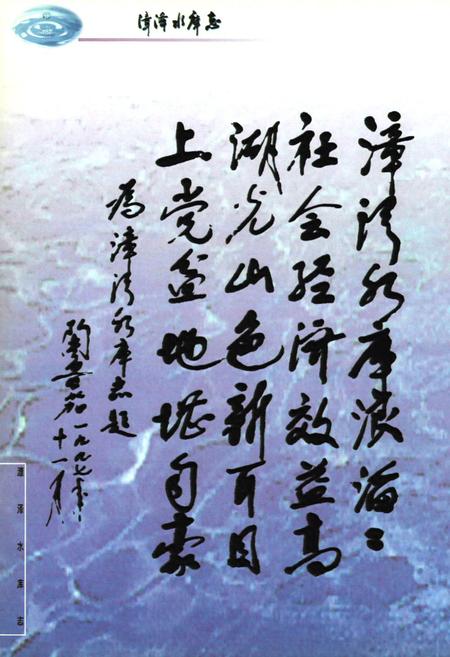 漳泽水库志
漳泽水库浪滔〻
社会经济效益高
湖光山色新耳目
上党盆地堪自豪
为漳泽水库志题
陶鲁笳一九九七年
十一月
漳泽水库志